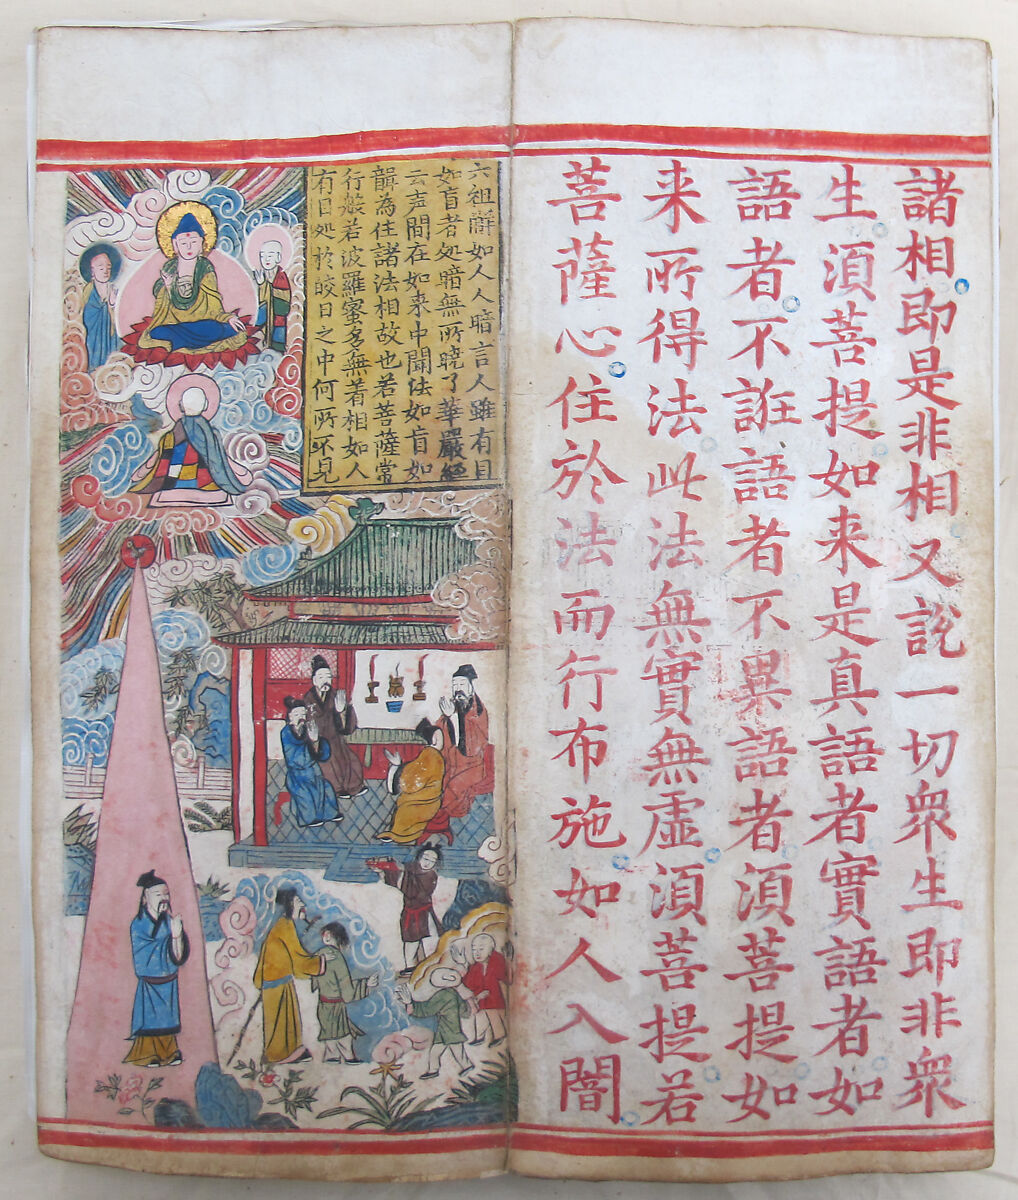 諸相即是非相又說一切衆生即非衆
生須菩提如来是真語者實語者如
語者不誑語者不異語者須菩提如
来所得法此法無實無虛須菩提若
菩薩心住於法而行布施如人入闇
六祖辭如人人暗言人雖有目
如盲者処暗無所曉了華嚴經
云声間在如来中聞法如盲如
韻為住諸法相故也若菩薩常
行般若波羅蜜多無着相如人
有目処於皎日之中何所不見